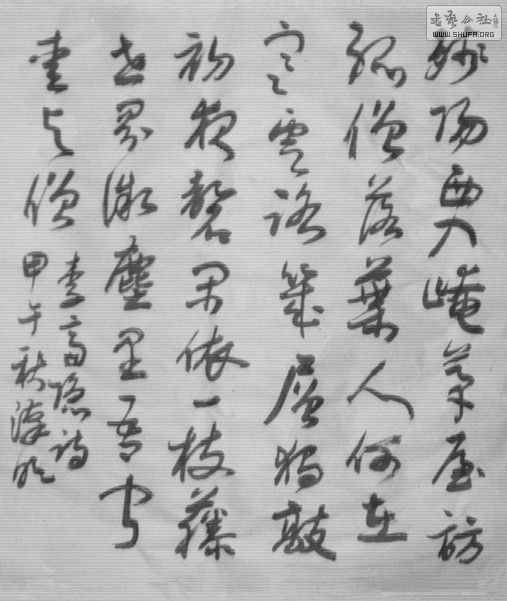 書藝公社
WWW.SHUFA.ORG
残陽西入崦茅屋訪
孤僧落葉人何在
寒雲路幾層独敲
初夜磬闲依一枝藤
世界微塵里吾宁
爱与憎
李商隐詩
甲午秋